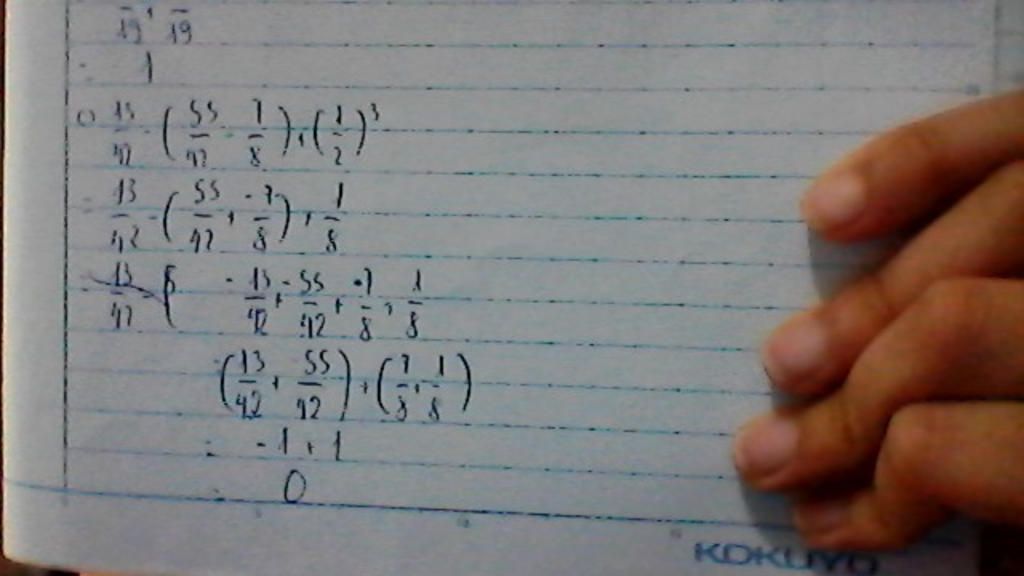 19 + 19
= 1
c) 13/42 - (55/42 - 7/8) + (1/2)^3
= 13/42 - (55/42 + -7/8) + 1/8
13/42 (
= 13/42 + -55/42 + 7/8 + 1/8
(13/42 + -55/42) + (7/8 + 1/8)
= -1 + 1
= 0
KOKUYO